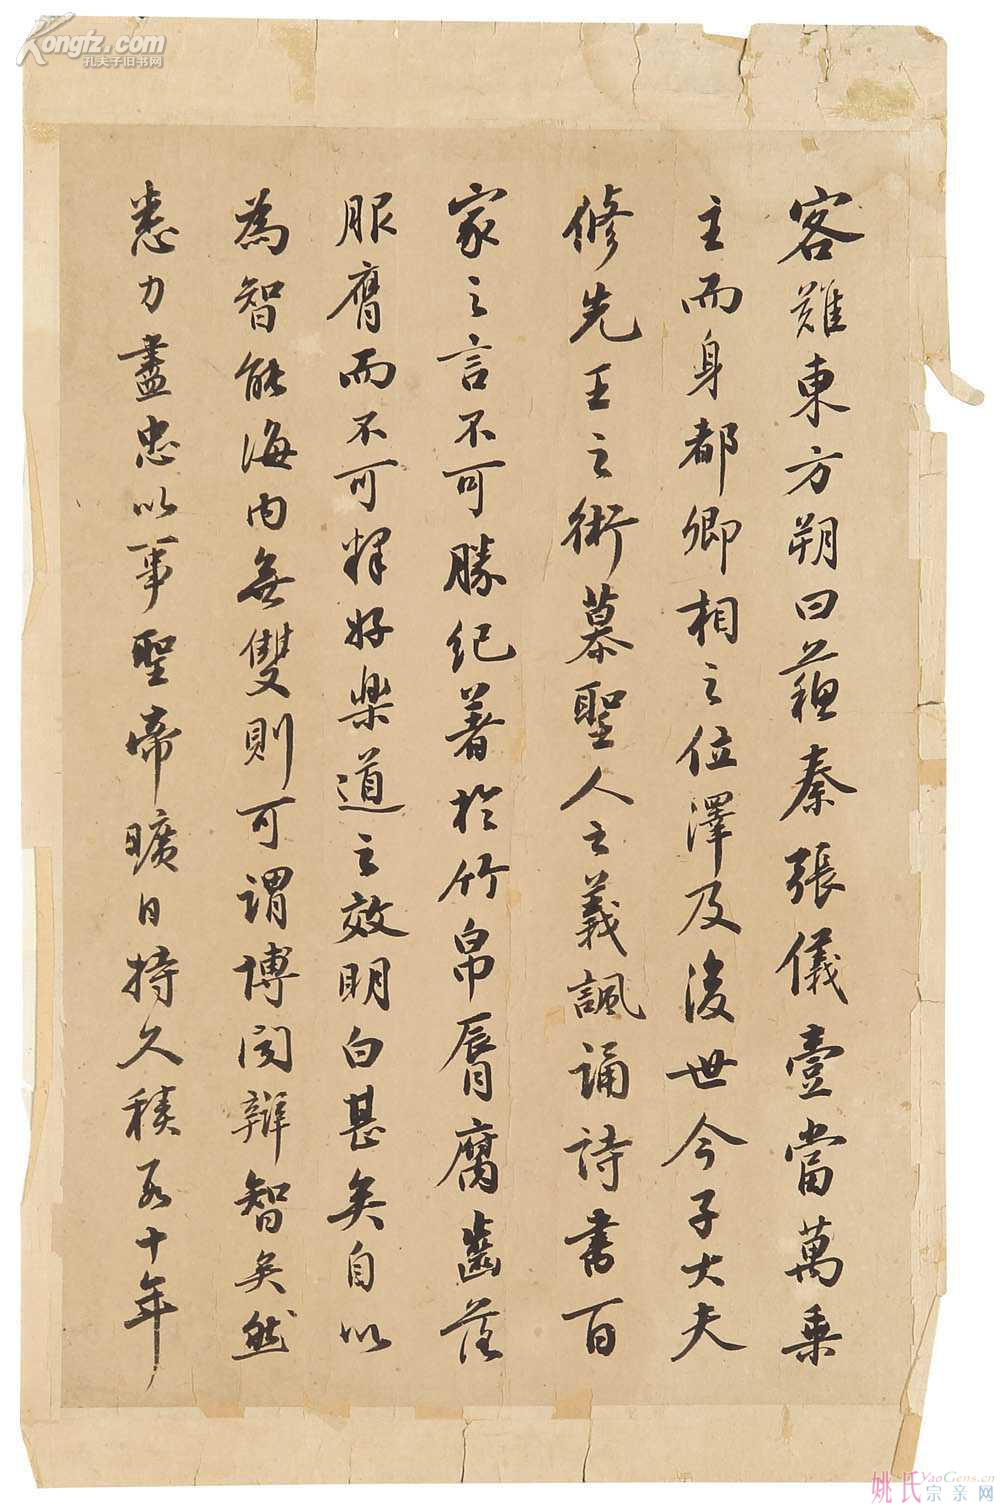 Kongfz.com
孔夫子旧书网
客難東方朔曰蘓秦張儀壹當萬乗
主而身都卿相之位澤及後世今子大夫
修先王之術慕聖人之義諷誦詩書百
家之言不可勝紀著於竹帛脣腐齒落
服膺而不可釋好樂道之效明白甚矣自以
為智能海内無雙則可謂博聞辯智矣然
悉力盡忠以事聖帝曠日持久積數十年
姚氏YaoGens.cn
宗亲网